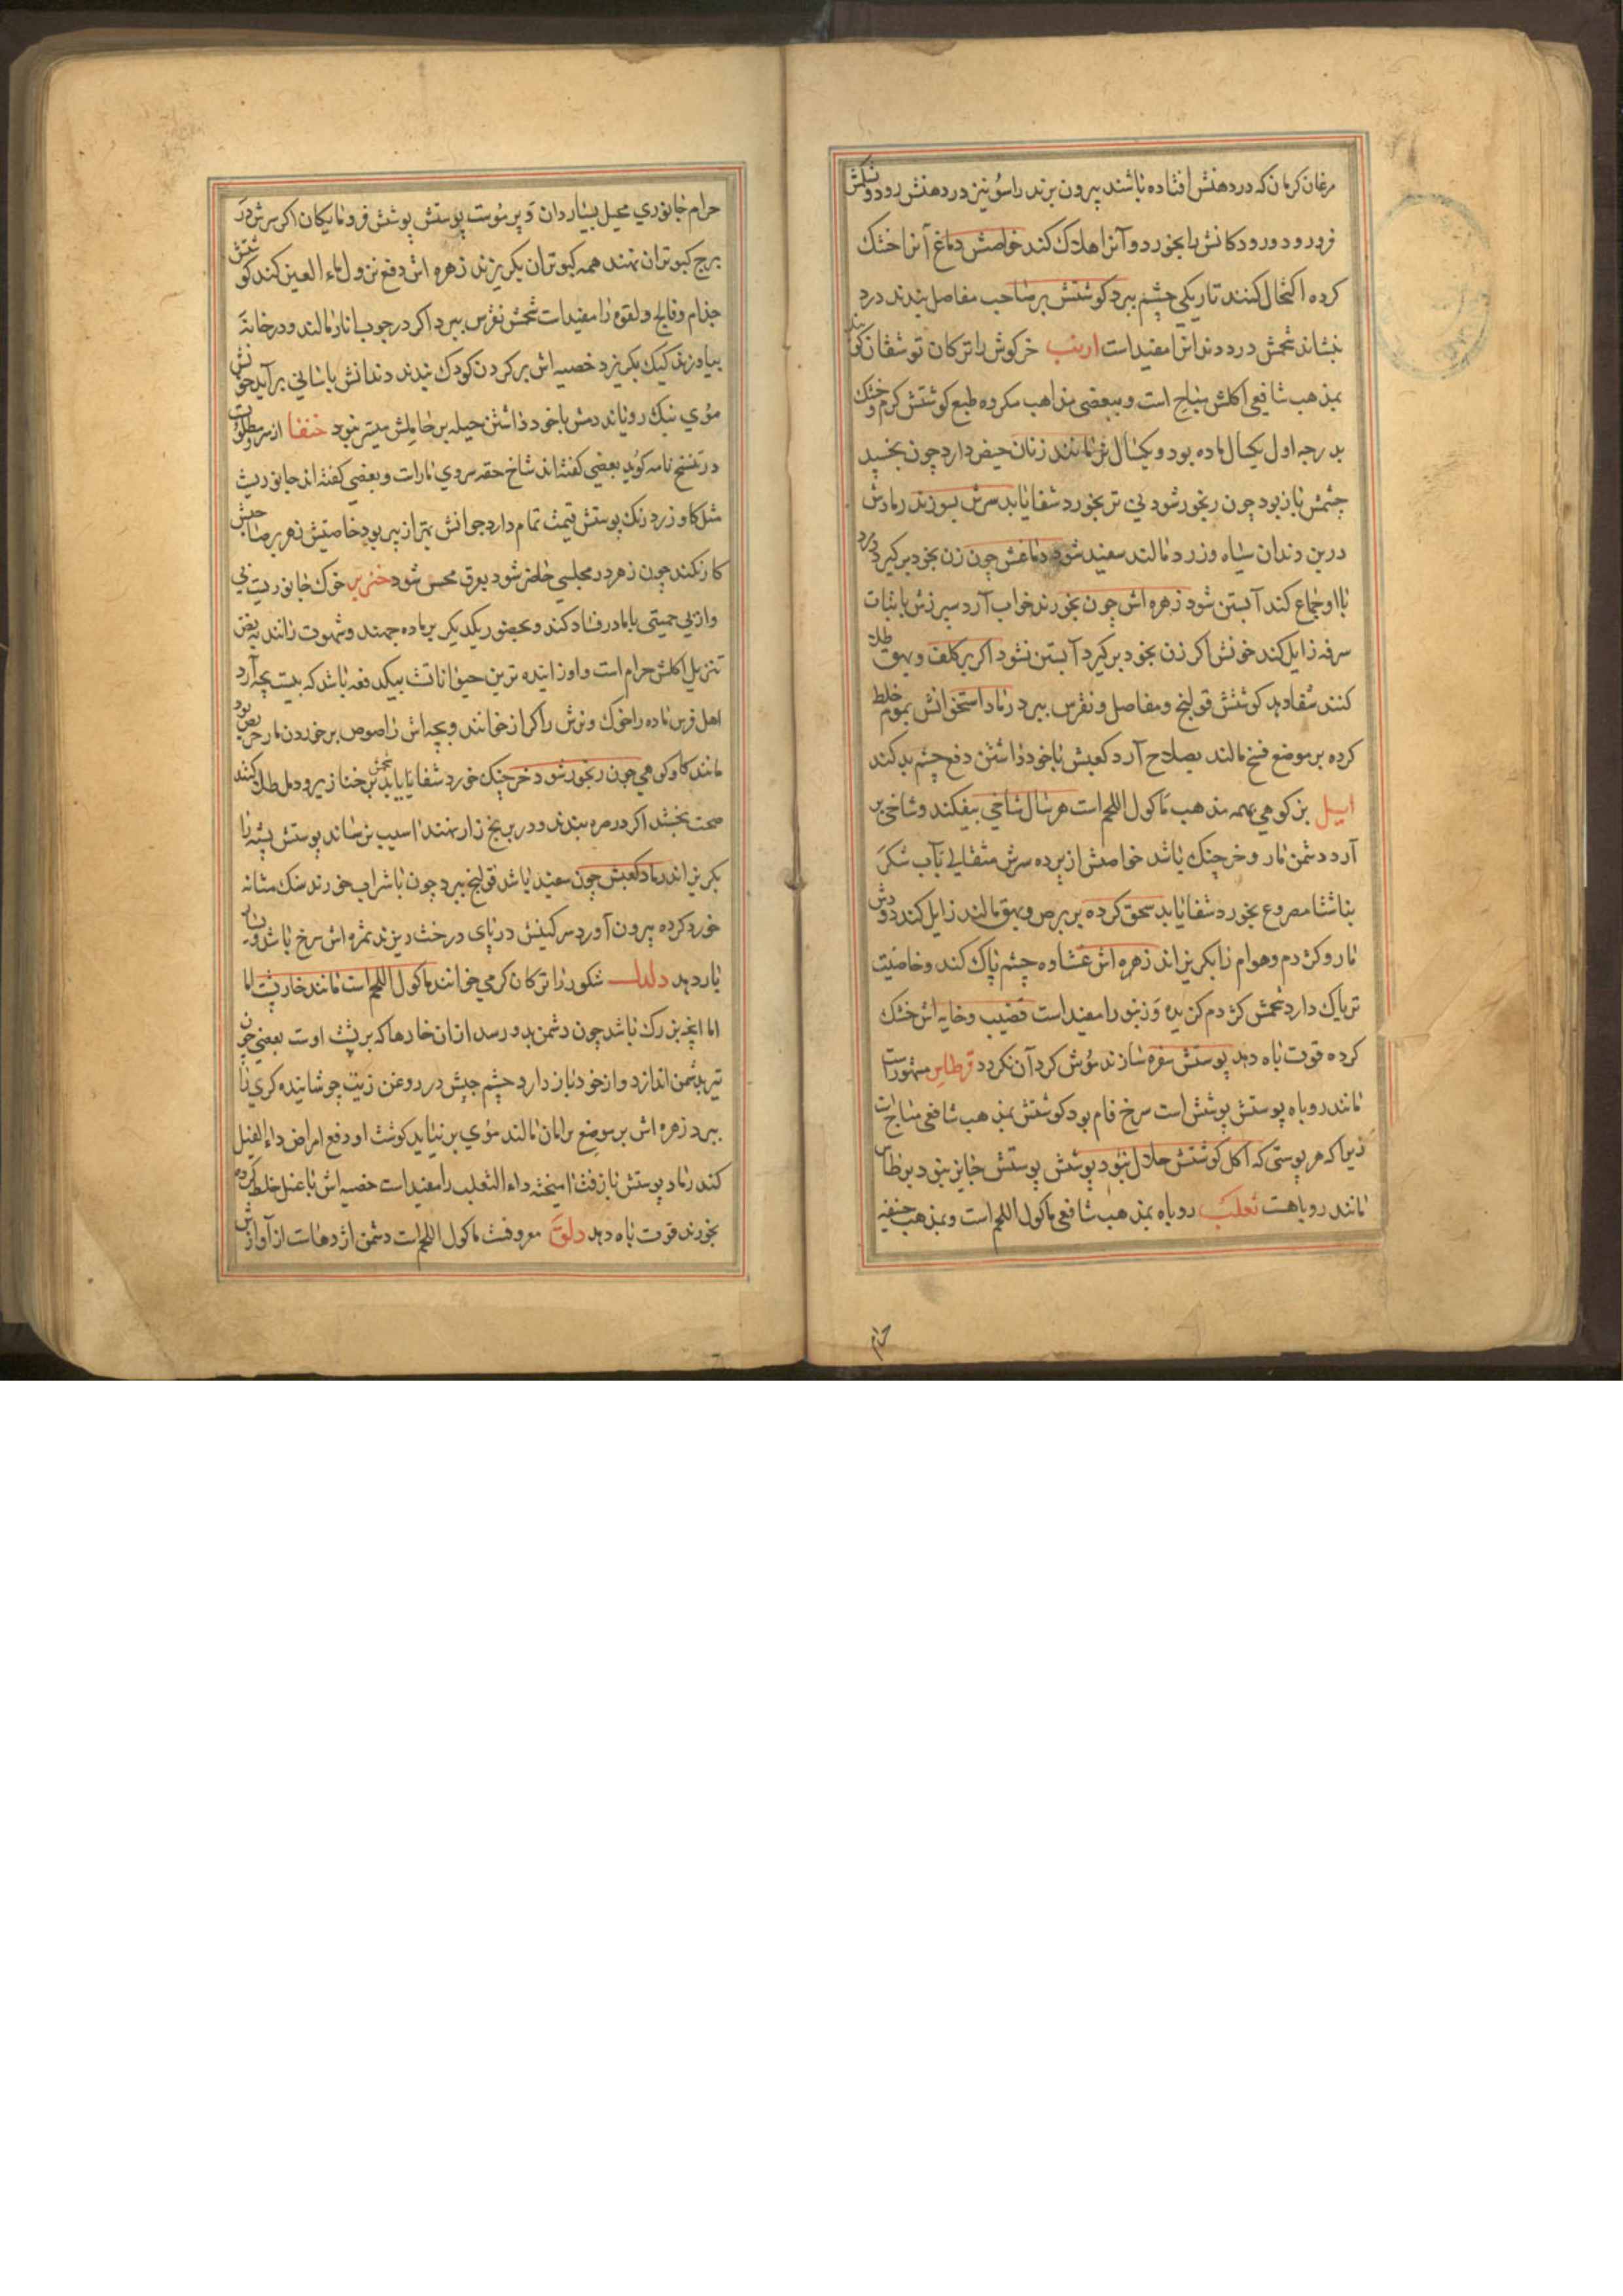 مرغان کرمان که در دهنش افتاده باشند بیرون برند راسو نیز در دهنش رود و شکمش
فرو رود و رودکانش را بخورد و آنرا هلاک کند خواصش دماغ آنرا خشک
کرده اکتحال کنند تاریکی چشم ببرد کوشتش بر صاحب مفاصل بندند درد
بنشاند شحمش درد دندانرا مفید است ارنب خرکوش را ترکان توشقان
بمذهب شافعی اکلش مباح است و ببعضی مذاهب مکروه طبع کوشتش کرم و خشک
بدرجه اول یکسال ماده بود و یکسال نر مانند زنان حیض دارد چون بخسپد
چشمش باز بود چون رنجور شود نی تر بخورد شفا یابد سرش بسوزند رمادش
در بن دندان سیاه و زرد مالند سفید شود دماغش چون زن بخود برکیرد
با او جماع کند آبستن شود زهره اش چون بخورند خواب آرد سپرزش با نبات
سرفه زایل کند خونش اکر زن بخود برکیرد آبستن نشود اکر بر کلف و بهق طلا
کنند شفا دهد کوشتش قولنج و مفاصل و نقرس ببرد رماد استخوانش بموم خلط
کرده بر موضع فسخ مالند بصلاح آرد کعبش با خود داشتن دفع چشم بد کند
ایل بز کوهی بهمه مذهب ماکول اللحم است هر سال شاخی بیفکند و شاخی بر
آرد دشمن مار و خرچنک باشد خواصش از پرده سرش مثقالی بآب شکر
بناشتا مصروع بخورد شفا یابد سحق کرده بر برص و بهق مالند زایل کند دودش
مار و کژدم و هوام را بکریزاند زهره اش غشاوه چشم پاک کند و خاصیت
تریاک دارد شحمش کژدم کزیده و زنبور را مفید است قضیب و خایه اش خشک
کرده قوت باه دهد پوستش سفره سازند موش کرد آن نکردد قرطاس مشهور است
مانند روباه پوستش پوشش است سرخ فام بود کوشتش بمذهب شافعی مباح است
زیرا که هر پوستی که اکل کوشتش حلال نبود پوشش پوستش جایز نبود برطاس
مانند روباهست ثعلب روباه بمذهب شافعی ماکول اللحم است و بمذهب حنفیه
حرام
حرام جانوری محیل بسیاردان و پر موست پوستش پوشش فرومایکان اکر سرش در
برج کبوتران نهند همه کبوتران بکریزند زهره اش دفع نزول ماء العین کند کوشتش
جذام و فالج و لقوه را مفید است شحمش نقرس ببرد اکر در چوب انار مالند و در خانه
بیاویزند کیک بکریزد خصیه اش بر کردن کودک بندند دندانش باسانی برآید خونش
موی نیک رویاند دمش با خود داشتن حیله بر حاملش میسر نبود خنفا
در تنسخ نامه کوید بعضی کفته اند شاخ حقه سردی مار است و بعضی کفته اند جانوریست
مثل کاو زرد رنک پوستش قیمت تمام دارد جوانش بهتر از پیر بود خاصیتش زهر بر صاحبش
کار نکند چون زهر در مجلسی حاضر شود بعرق محس شود خنزیر خوک جانوریست بی
و از بی حمیتی با مادر فساد کند و بحضور یکدیکر بر ماده جهند و شهوت رانند بنص
تنزیل اکلش حرام است و او زاینده ترین حیوانات بیکدفعه باشد که بیست بچه آرد
اهل فرس ماده را خوک و نرش را کراز خوانند و بچه اش را صوص بر خوردن مار حریص بود
مانند کاو کوهی چون رنجور شود خرچنک خورد شفا یابد شحمش بر خنازیر و دمل طلا کنند
صحت بخشد اکر در مره بندند و در برنج زار نهند آسیب نرساند پوستش پشه را
بکریزاند رماد کعبش چون سفید باشد قولنج ببرد چون با شراب خورند سنک مثانه
خورد کرده بیرون آورد سرکینش در پای درخت ریزند ثمره اش سرخ باشد و بسیار
بار دهد دلدل شکور را ترکان کرمی خوانند ماکول اللحم است مانند خارپشت اما
اما انچه بزرک باشد چون دشمن بدو رسد از آن خارها که بر پشت اوست بعضی چون
تیر بدشمن اندازد و از خود باز دارد چشم چپش در روغن زیت جوشانیده کری را
ببرد زهره اش بر موضع مالند موی بر نیاید کوشت او دفع امراض داء الفیل
کند رماد پوستش با زفت آمیخته داء الثعلب را مفید است خصیه اش با عسل خلط کرده
بخورند قوت باه دهد دلق معروفست ماکول اللحم است دشمن اژدهاست از آوازش